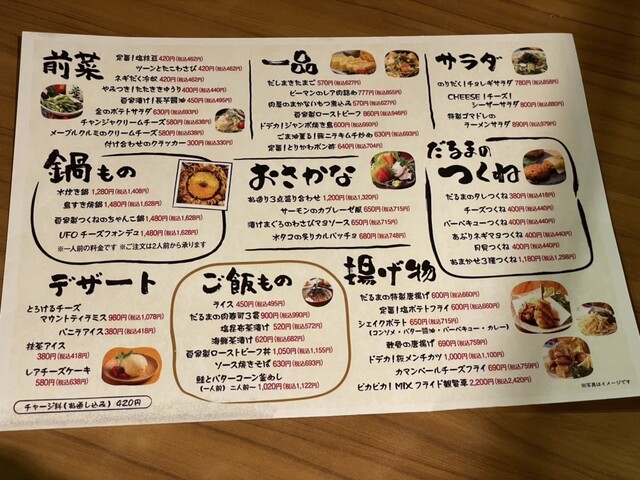 前菜
定番!塩枝豆 420円(税込462円)
ツーンとたこわさび 420円(税込462円)
ネギだく冷奴 420円(税込462円)
やみつき!たたききゅうり 400円(税込440円)
自家漬け!長芋醤油 450円(税込495円)
金のポテトサラダ 630円(税込693円)
チャンジャクリームチーズ 580円(税込638円)
メープルクルミのクリームチーズ 580円(税込638円)
付け合わせのクラッカー 300円(税込330円)
一品
だしまきたまご 570円(税込627円)
ピーマンのレア肉詰め 777円(税込855円)
肉屋のまかないもつ煮込み 570円(税込627円)
自家製ローストビーフ 860円(税込946円)
ドデカ!ジャンボ焼き鳥 630円(税込693円)
ごま油薫る!豚ニラキムチ炒め 630円(税込693円)
定番!とりかわポン酢 640円(税込704円)
サラダ
のりだく!チョレギサラダ 780円(税込858円)
CHEESE!チーズ!
シーザーサラダ 800円(税込880円)
特製ゴマドレの
ラーメンサラダ 890円(税込979円)
鍋もの
水炊き鍋 1,280円(税込1,408円)
鳥すき焼鍋 1,480円(税込1,628円)
自家製つくねのちゃんこ鍋 1,480円(税込1,628円)
UFOチーズフォンデュ 1,480円(税込1,628円)
※一人前の料金です ※ご注文は2人前から承ります
おさかな
お造り3点盛り合わせ 1,200円(税込1,320円)
サーモンのカプレーゼ風 650円(税込715円)
漬けまぐろのわさびマヨソース 650円(税込715円)
水タコの炙りカルパッチョ 680円(税込748円)
だるまの
つくね
だるまのタレつくね 380円(税込418円)
チーズつくね 400円(税込440円)
バーベキューつくね 400円(税込440円)
あぶりネギマヨつくね 400円(税込440円)
月見つくね 400円(税込440円)
おまかせ3種つくね 1,180円(税込1,298円)
デザート
とろけるチーズ
マウントティラミス 980円(税込1,078円)
バニラアイス 380円(税込418円)
抹茶アイス
380円(税込418円)
レアチーズケーキ
580円(税込638円)
チャージ料(お通し込み) 420円
ご飯もの
ライス 450円(税込495円)
だるまの肉寿司3貫 900円(税込990円)
塩昆布茶漬け 520円(税込572円)
海鮮茶漬け 620円(税込682円)
自家製ローストビーフ丼 1,050円(税込1,155円)
ソース焼きそば 630円(税込693円)
鮭とバターコーン釜めし
(一人前) 二人前〜 1,020円(税込1,122円)
揚げ物
だるまの特製唐揚げ 600円(税込660円)
定番!塩ポテトフライ 600円(税込660円)
シェイクポテト 650円(税込715円)
(コンソメ・バター醤油・バーベキュー・カレー)
軟骨の唐揚げ 690円(税込759円)
ドデカ!豚メンチカツ 1,000円(税込1,100円)
カマンベールチーズフライ 690円(税込759円)
ピカピカ!MIXフライド観覧車 2,200円(税込2,420円)
※写真はイメージです